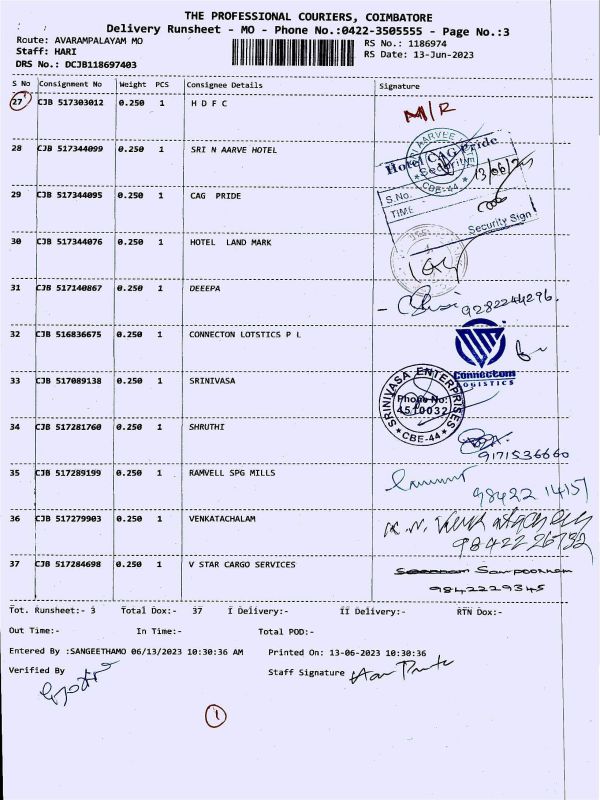 THE PROFESSIONAL COURIERS, COIMBATORE
Delivery Runsheet - MO - Phone No.:0422-3505555 - Page No.:3
Route: AVARAMPALAYAM MO
RS No.: 1186974
Staff: HARI
RS Date: 13-Jun-2023
DRS No.: DCJB118697403
S No Consignment No Weight PCS Consignee Details Signature
27 CJB 517303012 0.250 1 H D F C M/R
28 CJB 517344099 0.250 1 SRI N AARVE HOTEL
AARVEE
Hotel CAG Pride
Security
CBE-44
13/06/23
29 CJB 517344095 0.250 1 CAG PRIDE
S.No.
TIME
Security Sign
30 CJB 517344076 0.250 1 HOTEL LAND MARK
31 CJB 517140867 0.250 1 DEEEPA
9282244296.
32 CJB 516836675 0.250 1 CONNECTON LOTSTICS P L
Connectom
LOGISTICS
33 CJB 517089138 0.250 1 SRINIVASA
SRINIVASA ENTERPRISES
Phone No:
4510032
CBE-44
34 CJB 517281760 0.250 1 SHRUTHI
9171536660
35 CJB 517289199 0.250 1 RAMVELL SPG MILLS
98422 14157
36 CJB 517279903 0.250 1 VENKATACHALAM
98422 26732
37 CJB 517284698 0.250 1 V STAR CARGO SERVICES
9842229345
Tot. Runsheet:- 3 Total Dox:- 37 I Delivery:- II Delivery:- RTN Dox:-
Out Time:- In Time:- Total POD:-
Entered By :SANGEETHAMO 06/13/2023 10:30:36 AM Printed On: 13-06-2023 10:30:36
Verified By Staff Signature
1